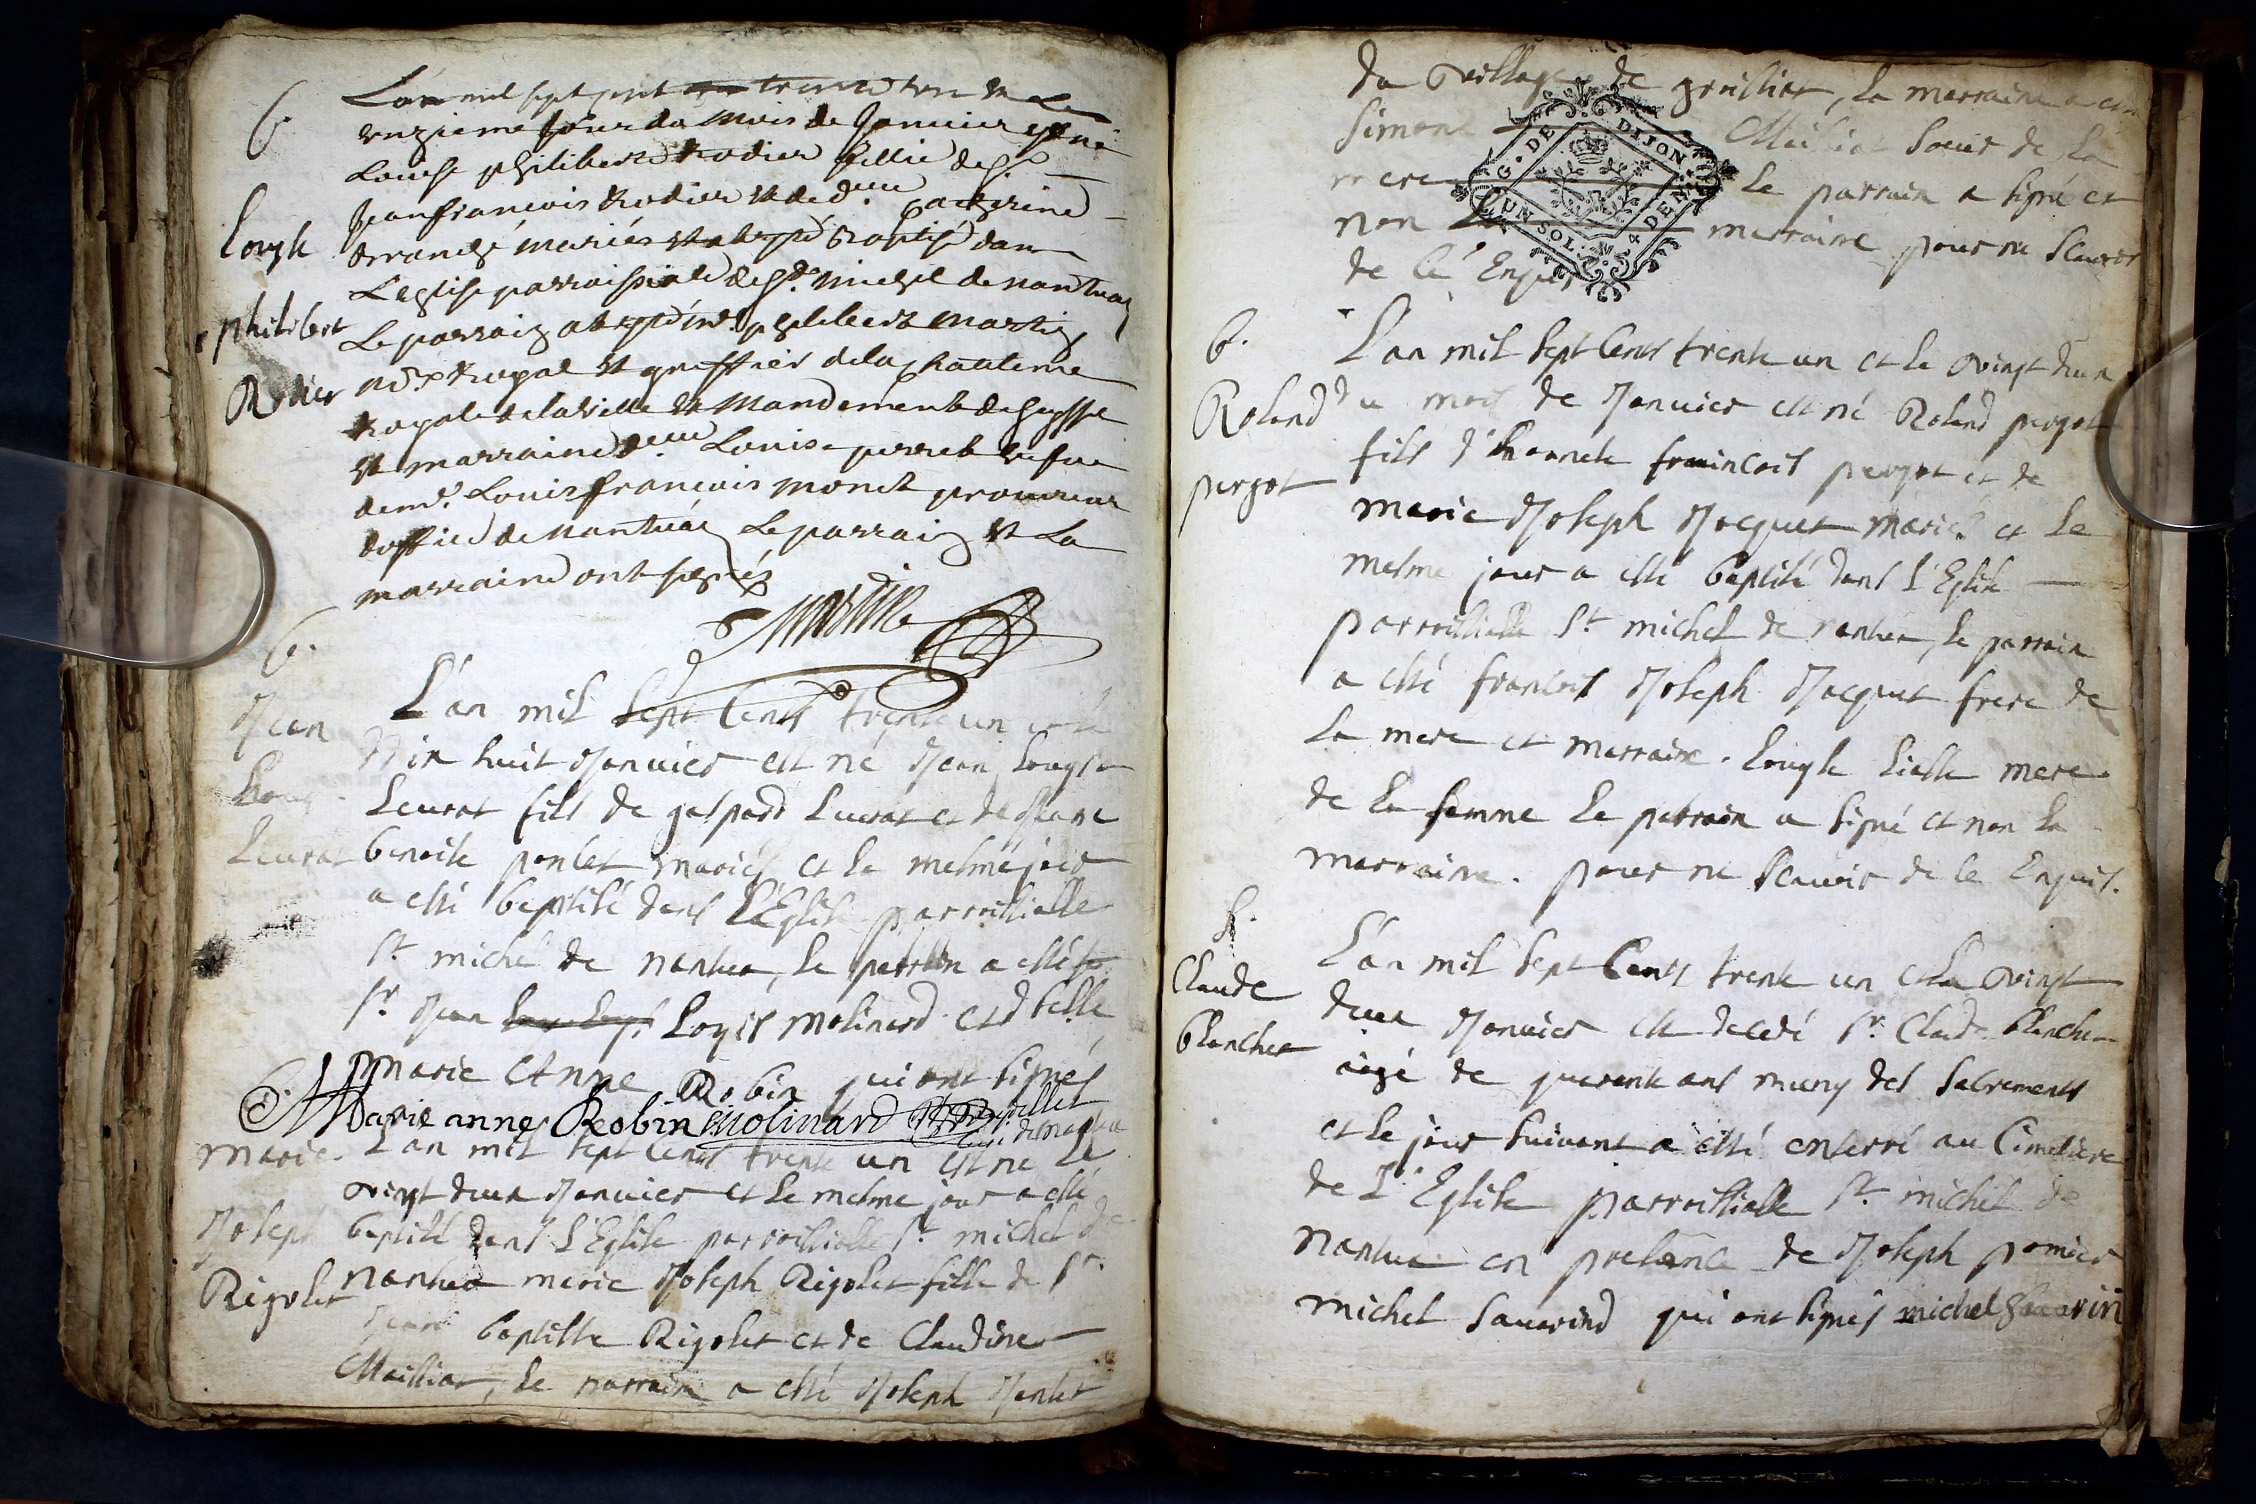 b.
Louyse
philibert
Rodier
L'an mil sept cent trente un et Le
onzieme Jour du Mois de Janvier est né
Louise philiberte Rodier fillie de Sr
Jean francois Rodier et de dlle
mariés et a esté Baptisé dans
L'eglise parroissiale de St. Michel de nantua
Le parrain a esté me. philibert Martin
Royal et greffier de la Chatelenie
Royale de la ville et Mandement de
et marraine dlle Louise perret vefve
de me. Louis francois monet procureur
d'office de nantua Le parrain et La
marraine ont signés
Martin
b.
Jean
Louys
Leurat
L'an mil sept Cents trente un et le
Dix huit Janvier est né Jean Louyse
Leurat fils de gaspard Leurat et de Jeane
benoite poncet mariés et le mesme jour
a esté baptisé dans L'Eglise parroissialle
St michel de nantua, le parrain a esté
Sr. Jean Loyis Molinard et dlle
Marie Anne Robin qui ont signés
Marie anne Robin Molinard
b.
Marie
Joseph
Rigolet
L'an mil sept Cents trente un est né le
vingt deux Janvier et le mesme jour a esté
baptisé dans L'Eglise parroissialle St. michel de
nantua marie Joseph Rigolet fille de Sr.
Jean baptiste Rigolet et de Claudine
Mailliat, le parrain a esté Joseph
du village de, la marraine a esté
Simone Mailliat soeur de la
mere le parrain a signé et
non la marraine pour ne scavoir
de ce Enquis
G. DE DIJON
UN SOL. 4 DEN
b.
Roland
pergot
L'an mil sept Cents trente un et le vingt deux
du mois de Janvier est né Roland pergot
fils d'honnete francois pergot et de
marie Joseph Jacquet mariés et le
mesme jour a esté baptisé dans L'Eglise
parroissialle St michel de nantua, le parrain
a esté francois Joseph Jacquet frere de
la mere et marraine Louyse mere
de la femme le parrain a signé et non la
marraine pour ne scavoir de ce Enquis.
S.
Claude
blanchet
L'an mil sept Cents trente un et le vingt
deux Janvier est decedé Sr. Claude blanchet
aagé de quarente ans muny des Sacrements
et le jour suivant a esté enterré au Cimetiere
de L'Eglise parroissialle St. michel de
nantua en presence de Joseph pomier
michel Sauvrind qui ont signés michel